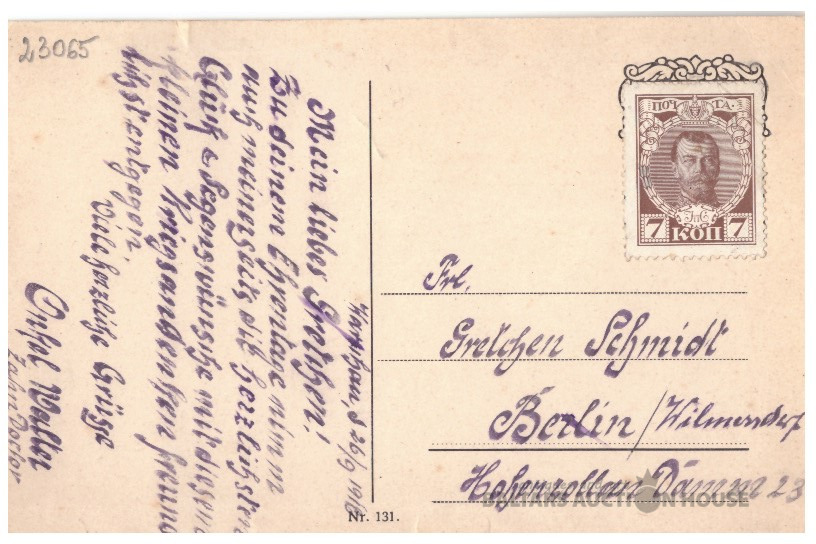 23065
Warschau, d 26/9 1916
Mein liebes Gretchen!
Zu deinen Ehrentage nimm
auch meinerseits die herzlichsten
Glück & Segenswünsche mit diesem
kleinen Kriegsandenken freund
lichst entgegen.
Viele herzliche Grüsse
Onkel Walter
Nr. 131.
ПОЧТА.
7 КОП 7
Frl.
Gretchen Schmidt
Berlin/Wilmersdorf
Hohenzollern Damm 23
BALTARS AUCTION HOUSE